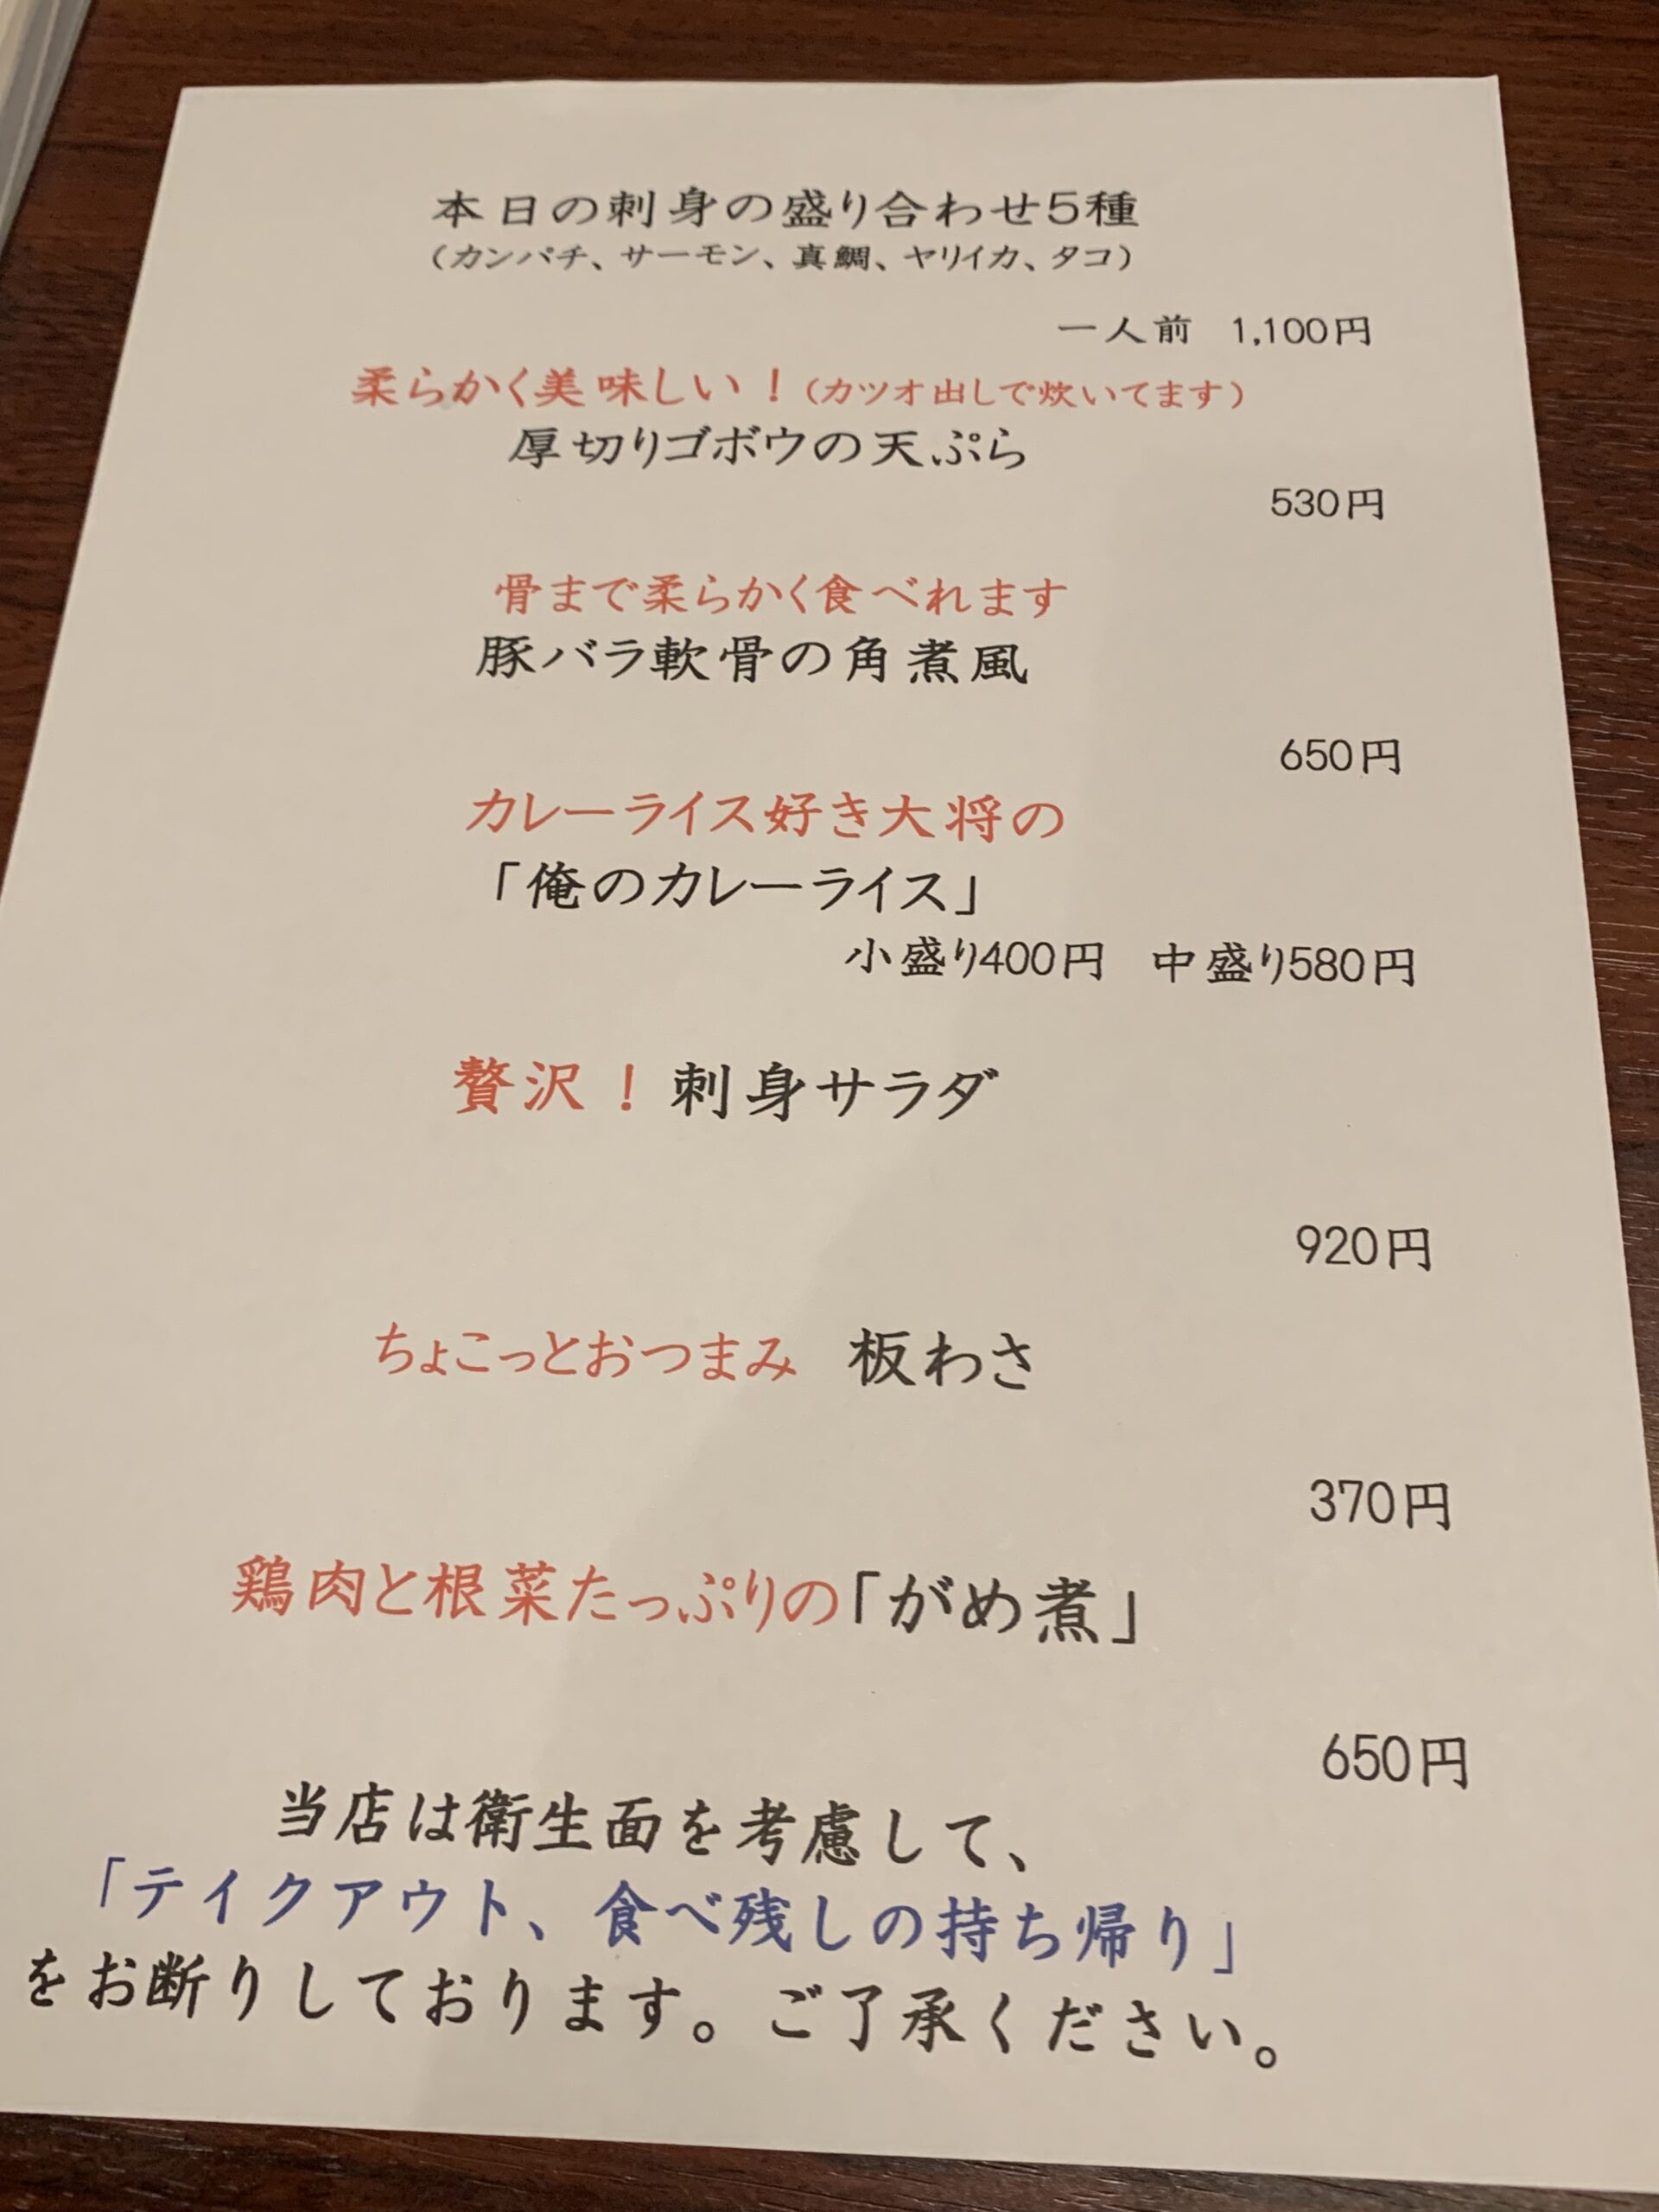 本日の刺身の盛り合わせ5種
(カンパチ、サーモン、真鯛、ヤリイカ、タコ)
一人前 1,100円
柔らかく美味しい!(カツオ出しで炊いてます)
厚切りゴボウの天ぷら
530円
骨まで柔らかく食べれます
豚バラ軟骨の角煮風
650円
カレーライス好き大将の
「俺のカレーライス」
小盛り400円 中盛り580円
贅沢!刺身サラダ
920円
ちょこっとおつまみ 板わさ
370円
鶏肉と根菜たっぷりの「がめ煮」
650円
当店は衛生面を考慮して、
「テイクアウト、食べ残しの持ち帰り」
をお断りしております。ご了承ください。